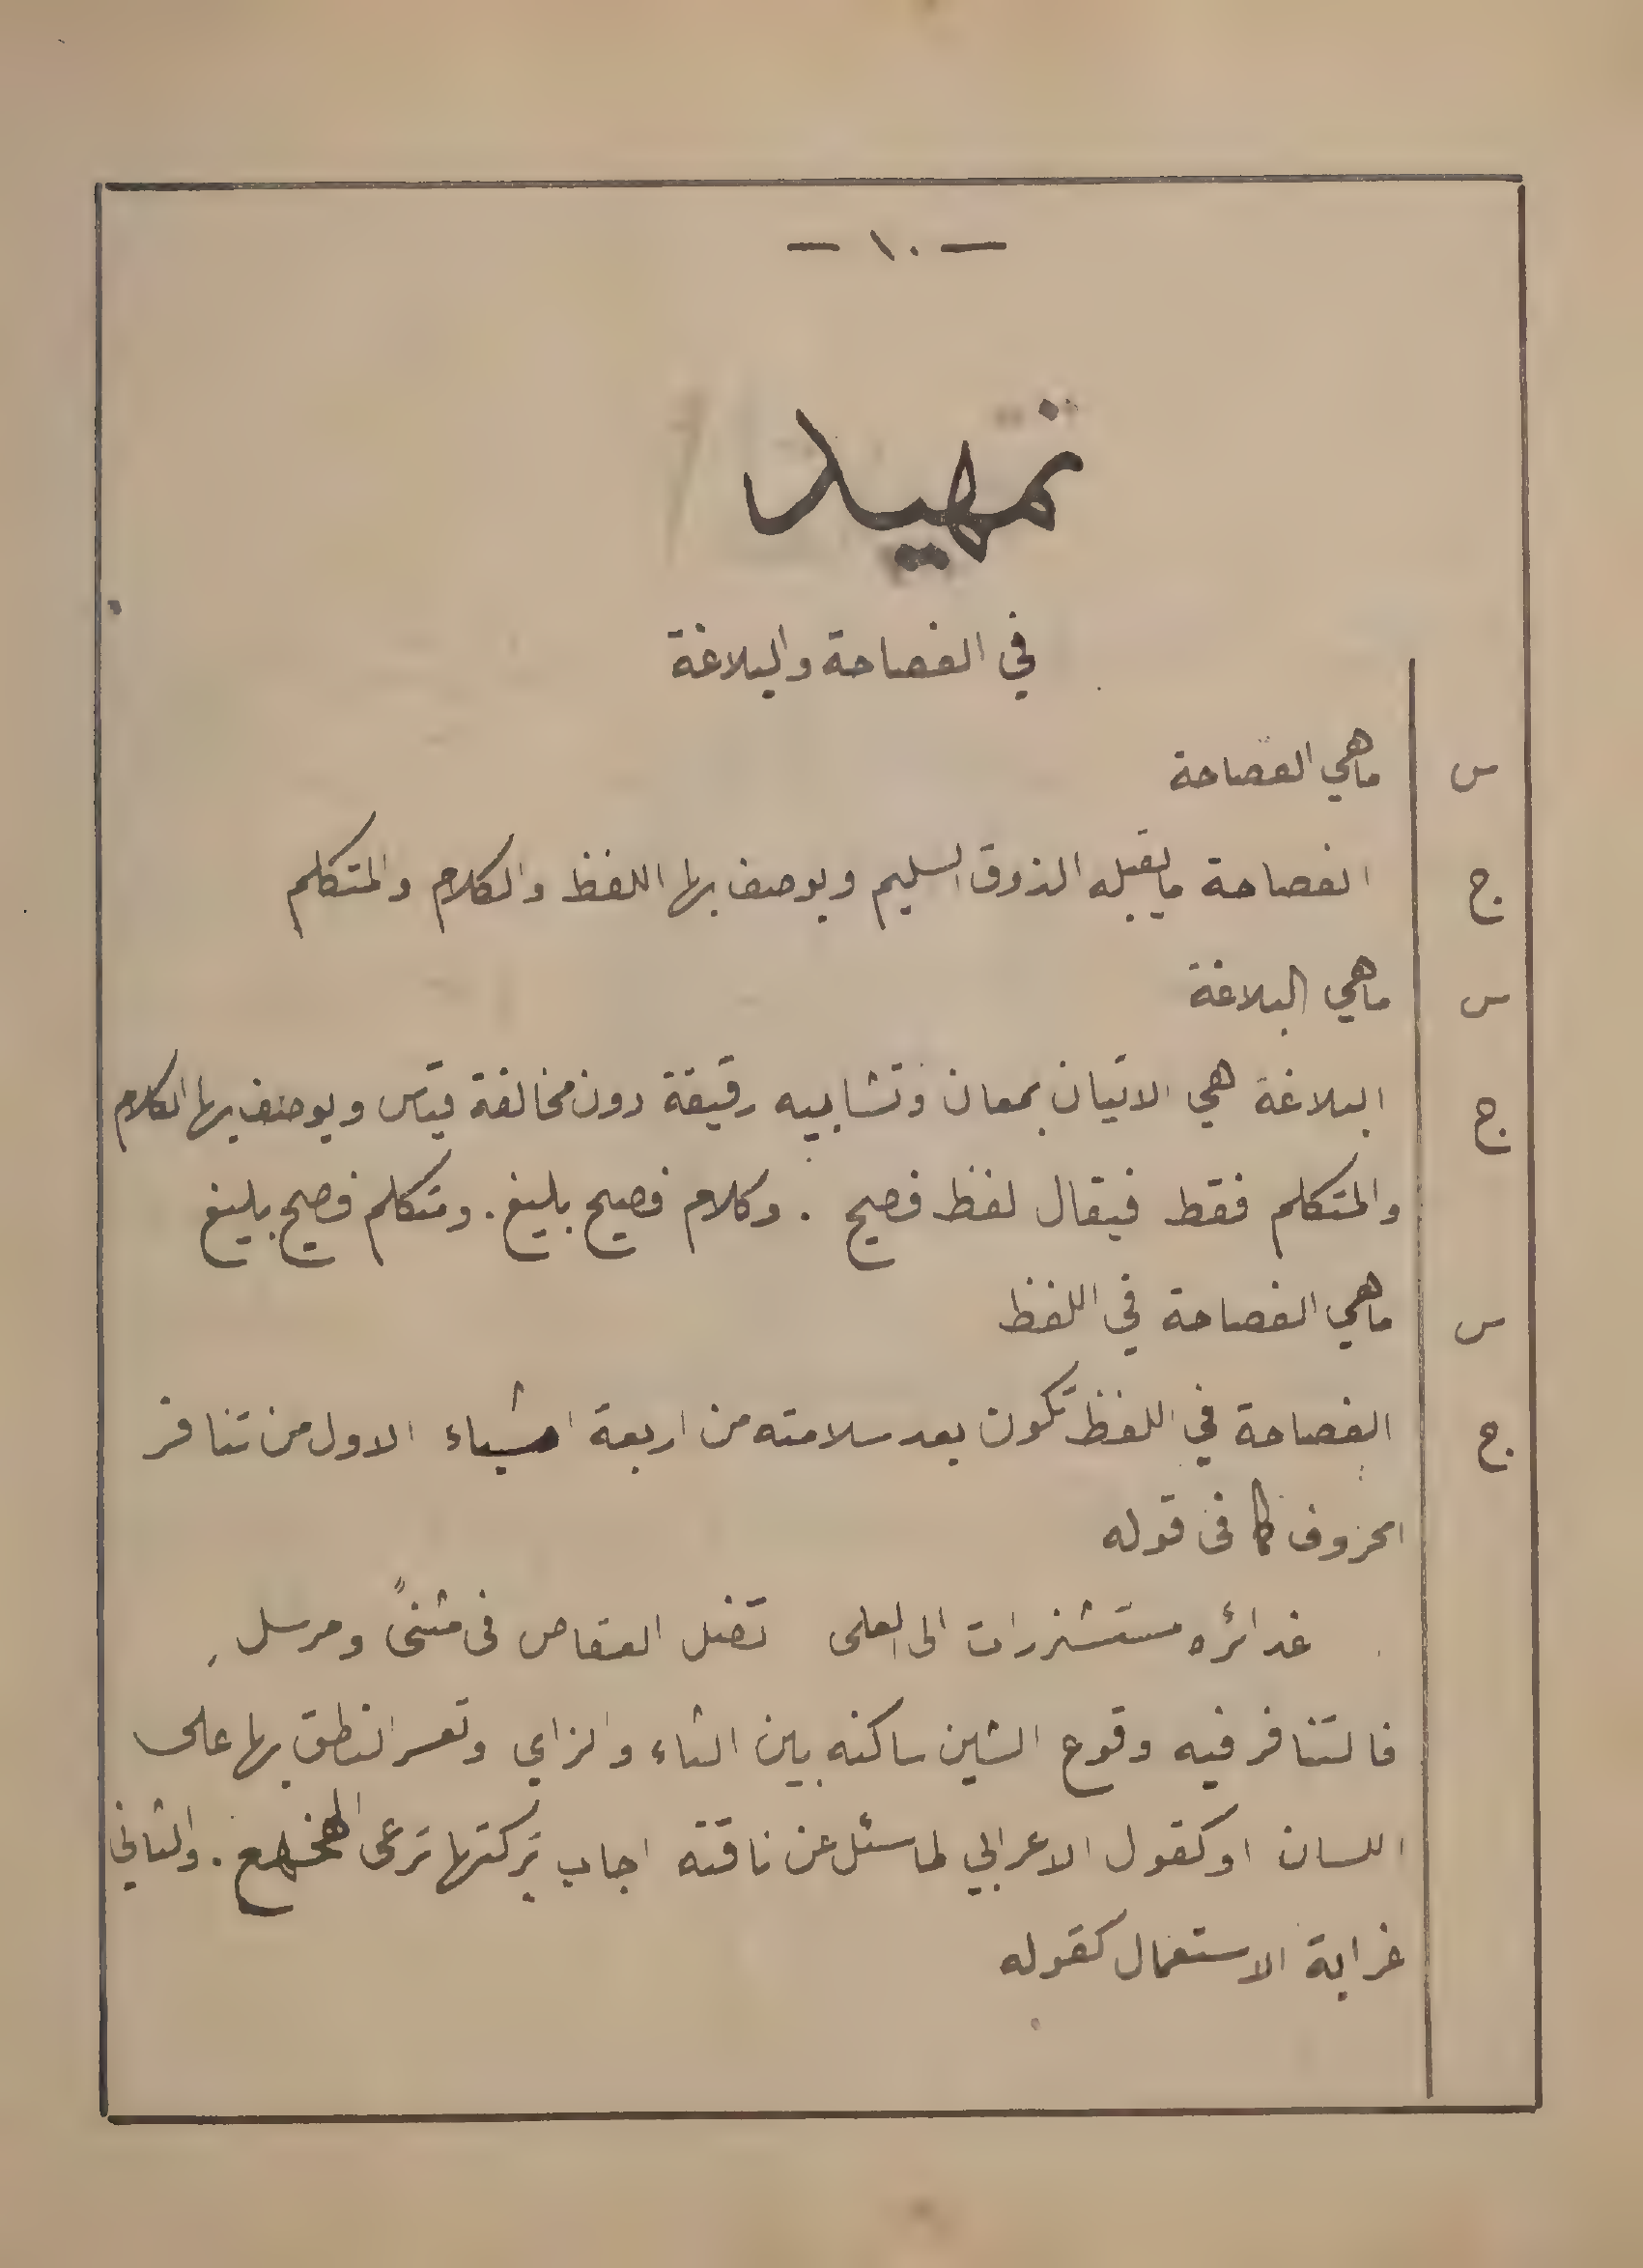 — ١٠ —
تمهيد
في الفصاحة والبلاغة
س ماهي الفصاحة
ج الفصاحة مايقبله الذوق السليم ويوصف بها اللفظ والكلام والمتكلم
س ماهي البلاغة
ج البلاغة هي الاتيان بمعان وتشابيه رقيقة دون مخالفة قياس ويوصف بها الكلام
والمتكلم فقط فيقال لفظ فصيح . وكلام فصيح بليغ . ومتكلم فصيح بليغ
س ماهي الفصاحة في اللفظ
ج الفصاحة في اللفظ تكون بعد سلامته من اربعة اشياء الاول من تنافر
الحروف كما في قوله
غدائره مستشزرات الى العلى تضل العقاص في مثنىً ومرسلِ
فالتنافر فيه وقوع الشين ساكنه بين التاء والزاي وتعسر النطق بها على
اللسان او كقول الاعرابي لما سئل عن ناقته اجاب تركتها ترعى الهخهع . والثاني
غرابة الاستعمال كقوله